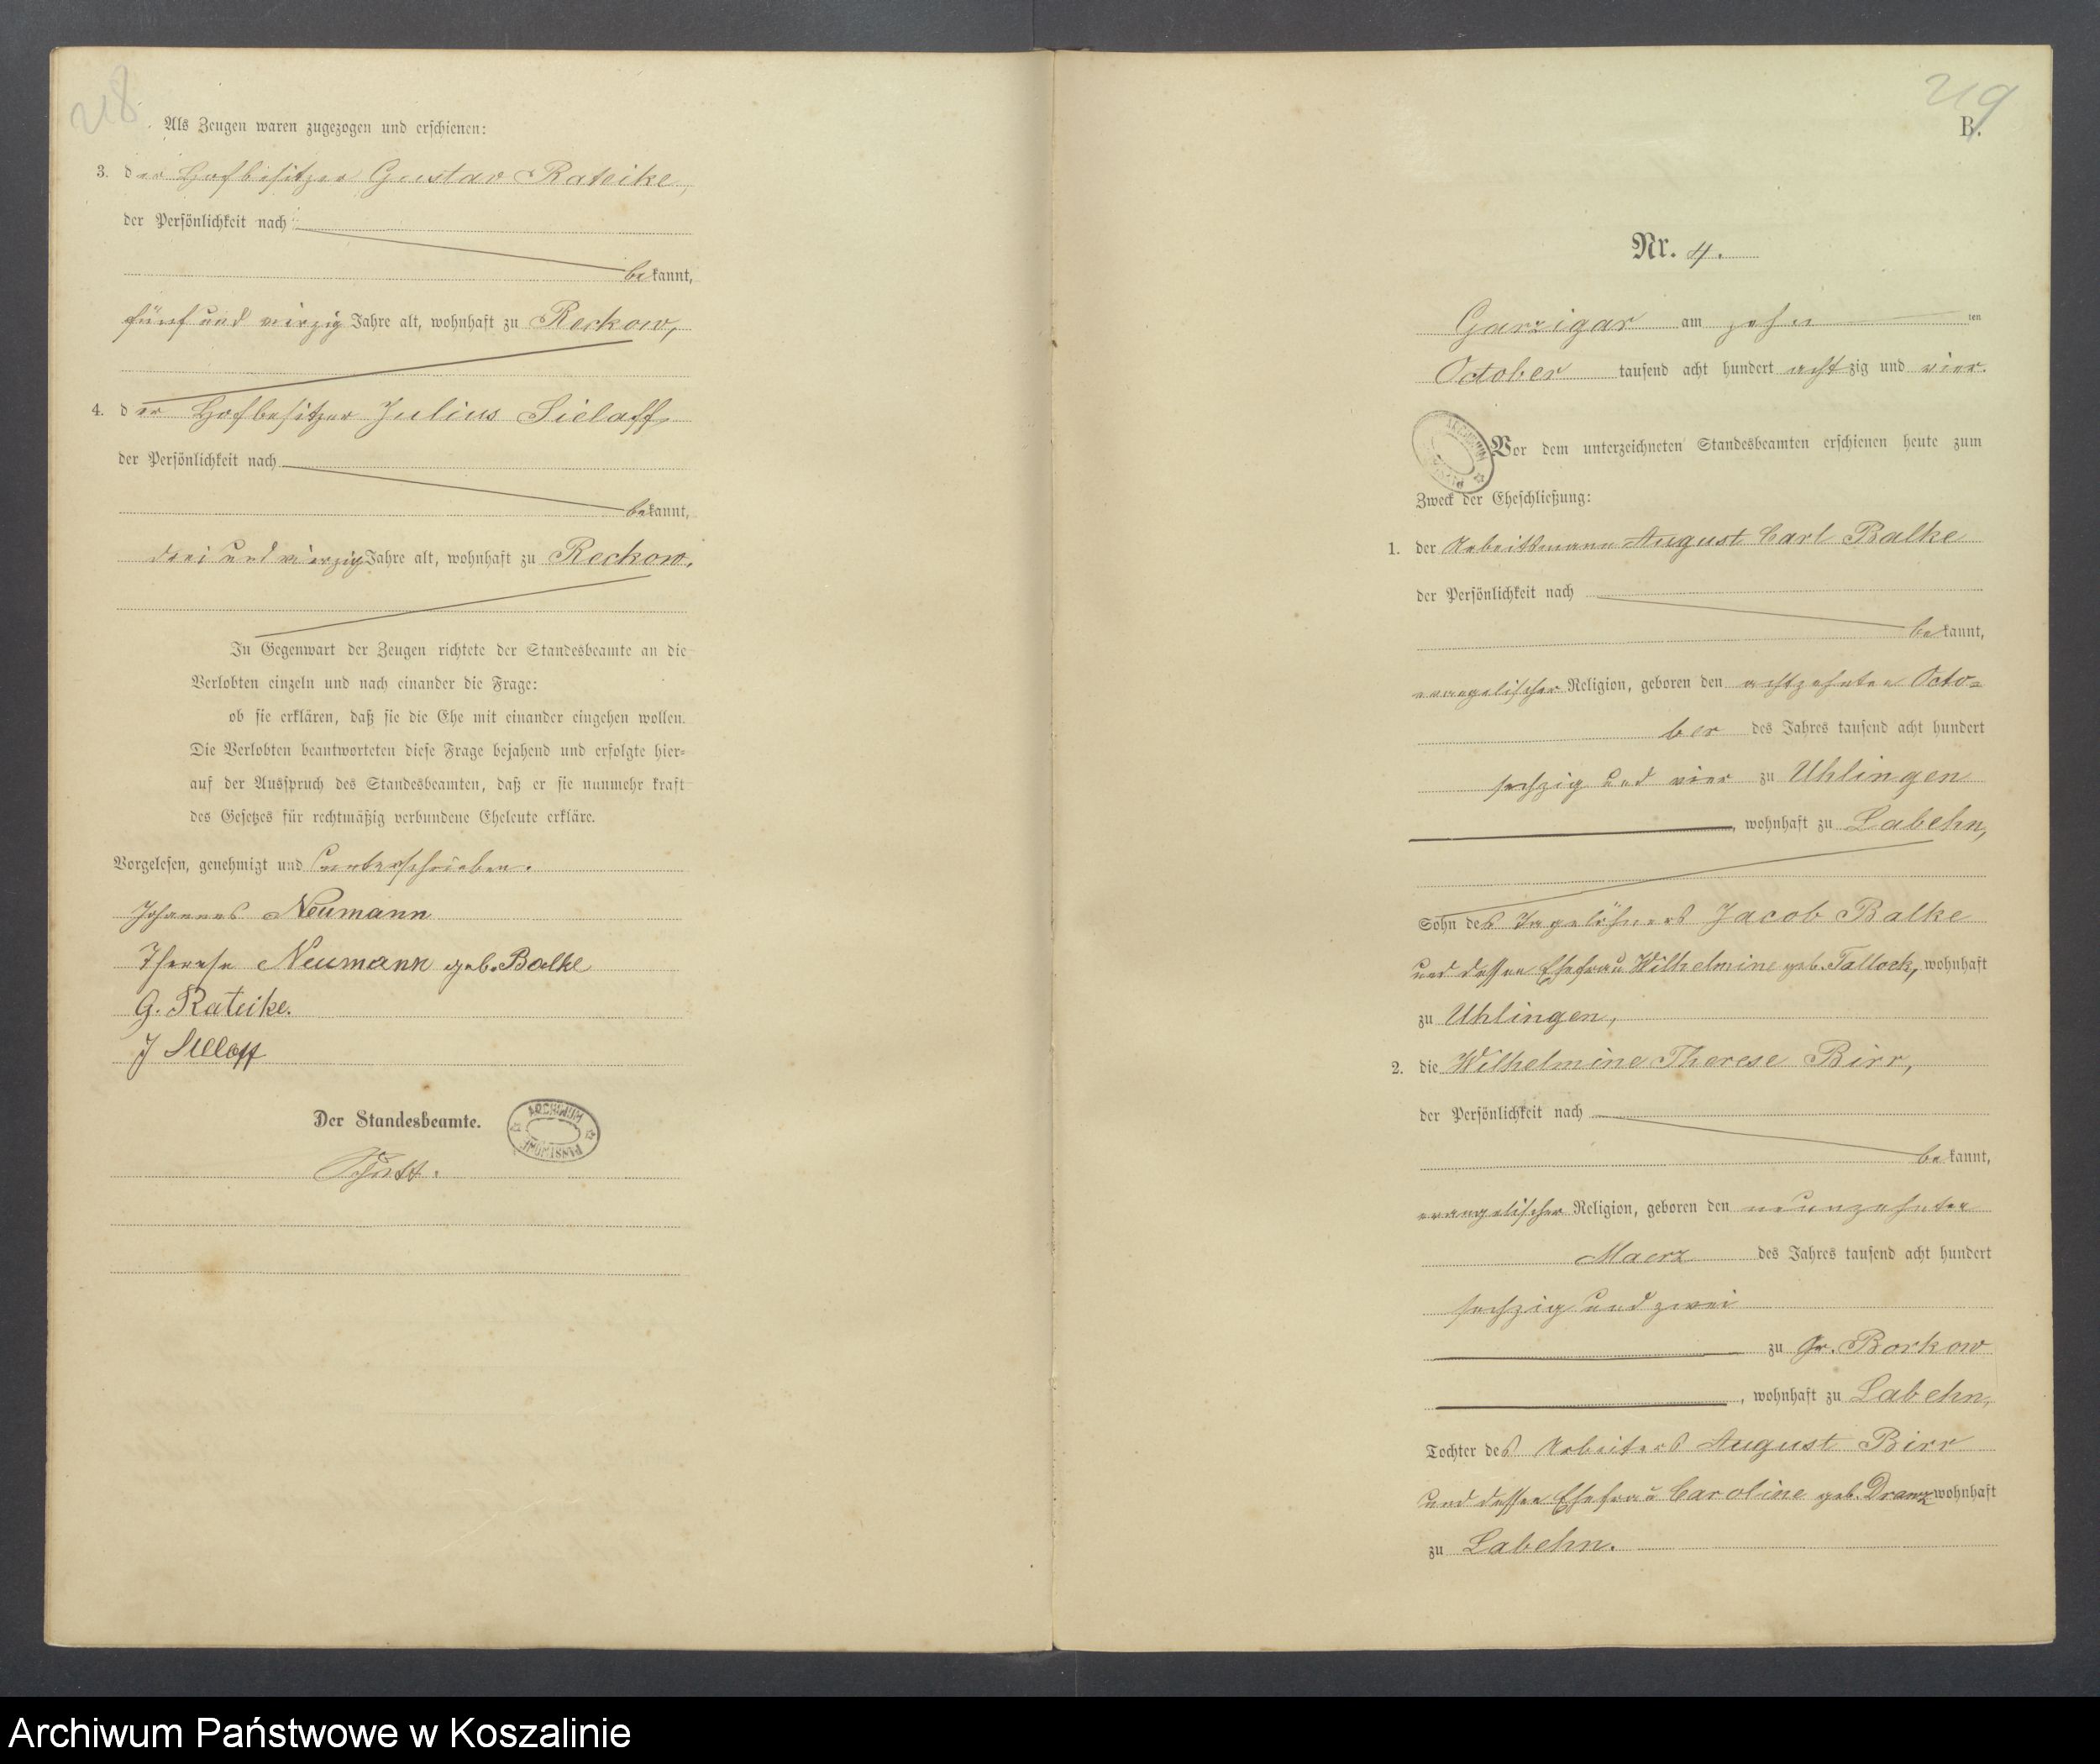 218
Als Zeugen waren zugezogen und erschienen:
3. der Hofbesitzer Gustav Rateike,
der Persönlichkeit nach
bekannt,
fünf und vierzig Jahre alt, wohnhaft zu Reckow,
4. der Hofbesitzer Julius Sielaff
der Persönlichkeit nach
bekannt,
drei und vierzig Jahre alt, wohnhaft zu Reckow.
In Gegenwart der Zeugen richtete der Standesbeamte an die
Verlobten einzeln und nach einander die Frage:
ob sie erklären, daß sie die Ehe mit einander eingehen wollen.
Die Verlobten beantworteten diese Frage bejahend und erfolgte hier=
auf der Ausspruch des Standesbeamten, daß er sie nunmehr kraft
des Gesetzes für rechtmäßig verbundene Eheleute erkläre.
Vorgelesen, genehmigt und unterschrieben.
Johannes Neumann
Therese Neumann geb. Balke
G. Rateike.
J Sielaff
Der Standesbeamte.
ARCHIWUM PAŃSTWOWE
219
B.
Nr. 4.
Garzigar am zehnten
October tausend acht hundert achtzig und vier.
ARCHIWUM
Vor dem unterzeichneten Standesbeamten erschienen heute zum
Zweck der Eheschließung:
1. der Arbeitsmann August Carl Balke
der Persönlichkeit nach
bekannt,
evangelischer Religion, geboren den achtzehnten Octo=
ber des Jahres tausend acht hundert
sechzig und vier zu Uhlingen
, wohnhaft zu Labehn,
Sohn des Tagelöhners Jacob Balke
und dessen Ehefrau Wilhelmine geb. Tallock, wohnhaft
zu Uhlingen,
2. die Wilhelmine Therese Birr,
der Persönlichkeit nach
bekannt,
evangelischer Religion, geboren den neunzehnten
Maerz des Jahres tausend acht hundert
sechzig und zwei
zu Gr. Borkow
, wohnhaft zu Labehn,
Tochter des Arbeiters August Birr
und dessen Ehefrau Caroline geb. Dranz wohnhaft
zu Labehn.
Archiwum Państwowe w Koszalinie